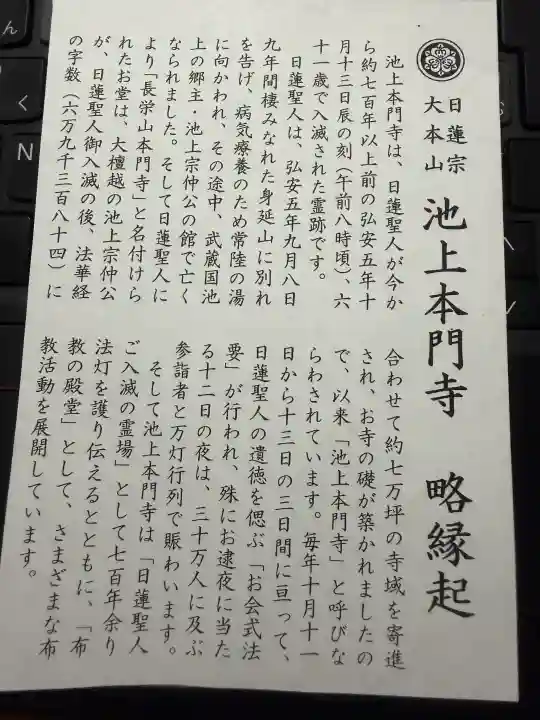 日蓮宗
大本山
池上本門寺 略縁起
池上本門寺は、日蓮聖人が今か
ら約七百年以上前の弘安五年十
月十三日辰の刻(午前八時頃)、六
十一歳で入滅された霊跡です。
日蓮聖人は、弘安五年九月八日
九年間棲みなれた身延山に別れ
を告げ、病気療養のため常陸の湯
に向かわれ、その途中、武蔵国池
上の郷主・池上宗仲公の館で亡く
なられました。そして日蓮聖人に
より「長栄山本門寺」と名付けら
れたお堂は、大檀越の池上宗仲公
が、日蓮聖人御入滅の後、法華経
の字数(六万九千三百八十四)に
合わせて約七万坪の寺域を寄進
され、お寺の礎が築かれましたの
で、以来「池上本門寺」と呼びな
らわされています。毎年十月十一
日から十三日の三日間に亘って、
日蓮聖人の遺徳を偲ぶ「お会式法
要」が行われ、殊にお逮夜に当た
る十二日の夜は、三十万人に及ぶ
参詣者と万灯行列で賑わいます。
そして池上本門寺は「日蓮聖人
ご入滅の霊場」として七百年余り
法灯を護り伝えるとともに、「布
教の殿堂」として、さまざまな布
教活動を展開しています。
N